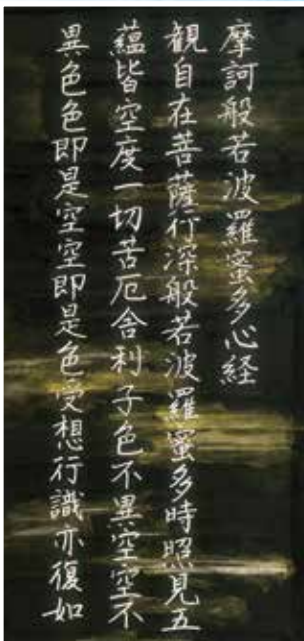 摩訶般若波羅蜜多心経
観自在菩薩行深般若波羅蜜多時照見五
蘊皆空度一切苦厄舎利子色不異空空不
異色色即是空空即是色受想行識亦復如